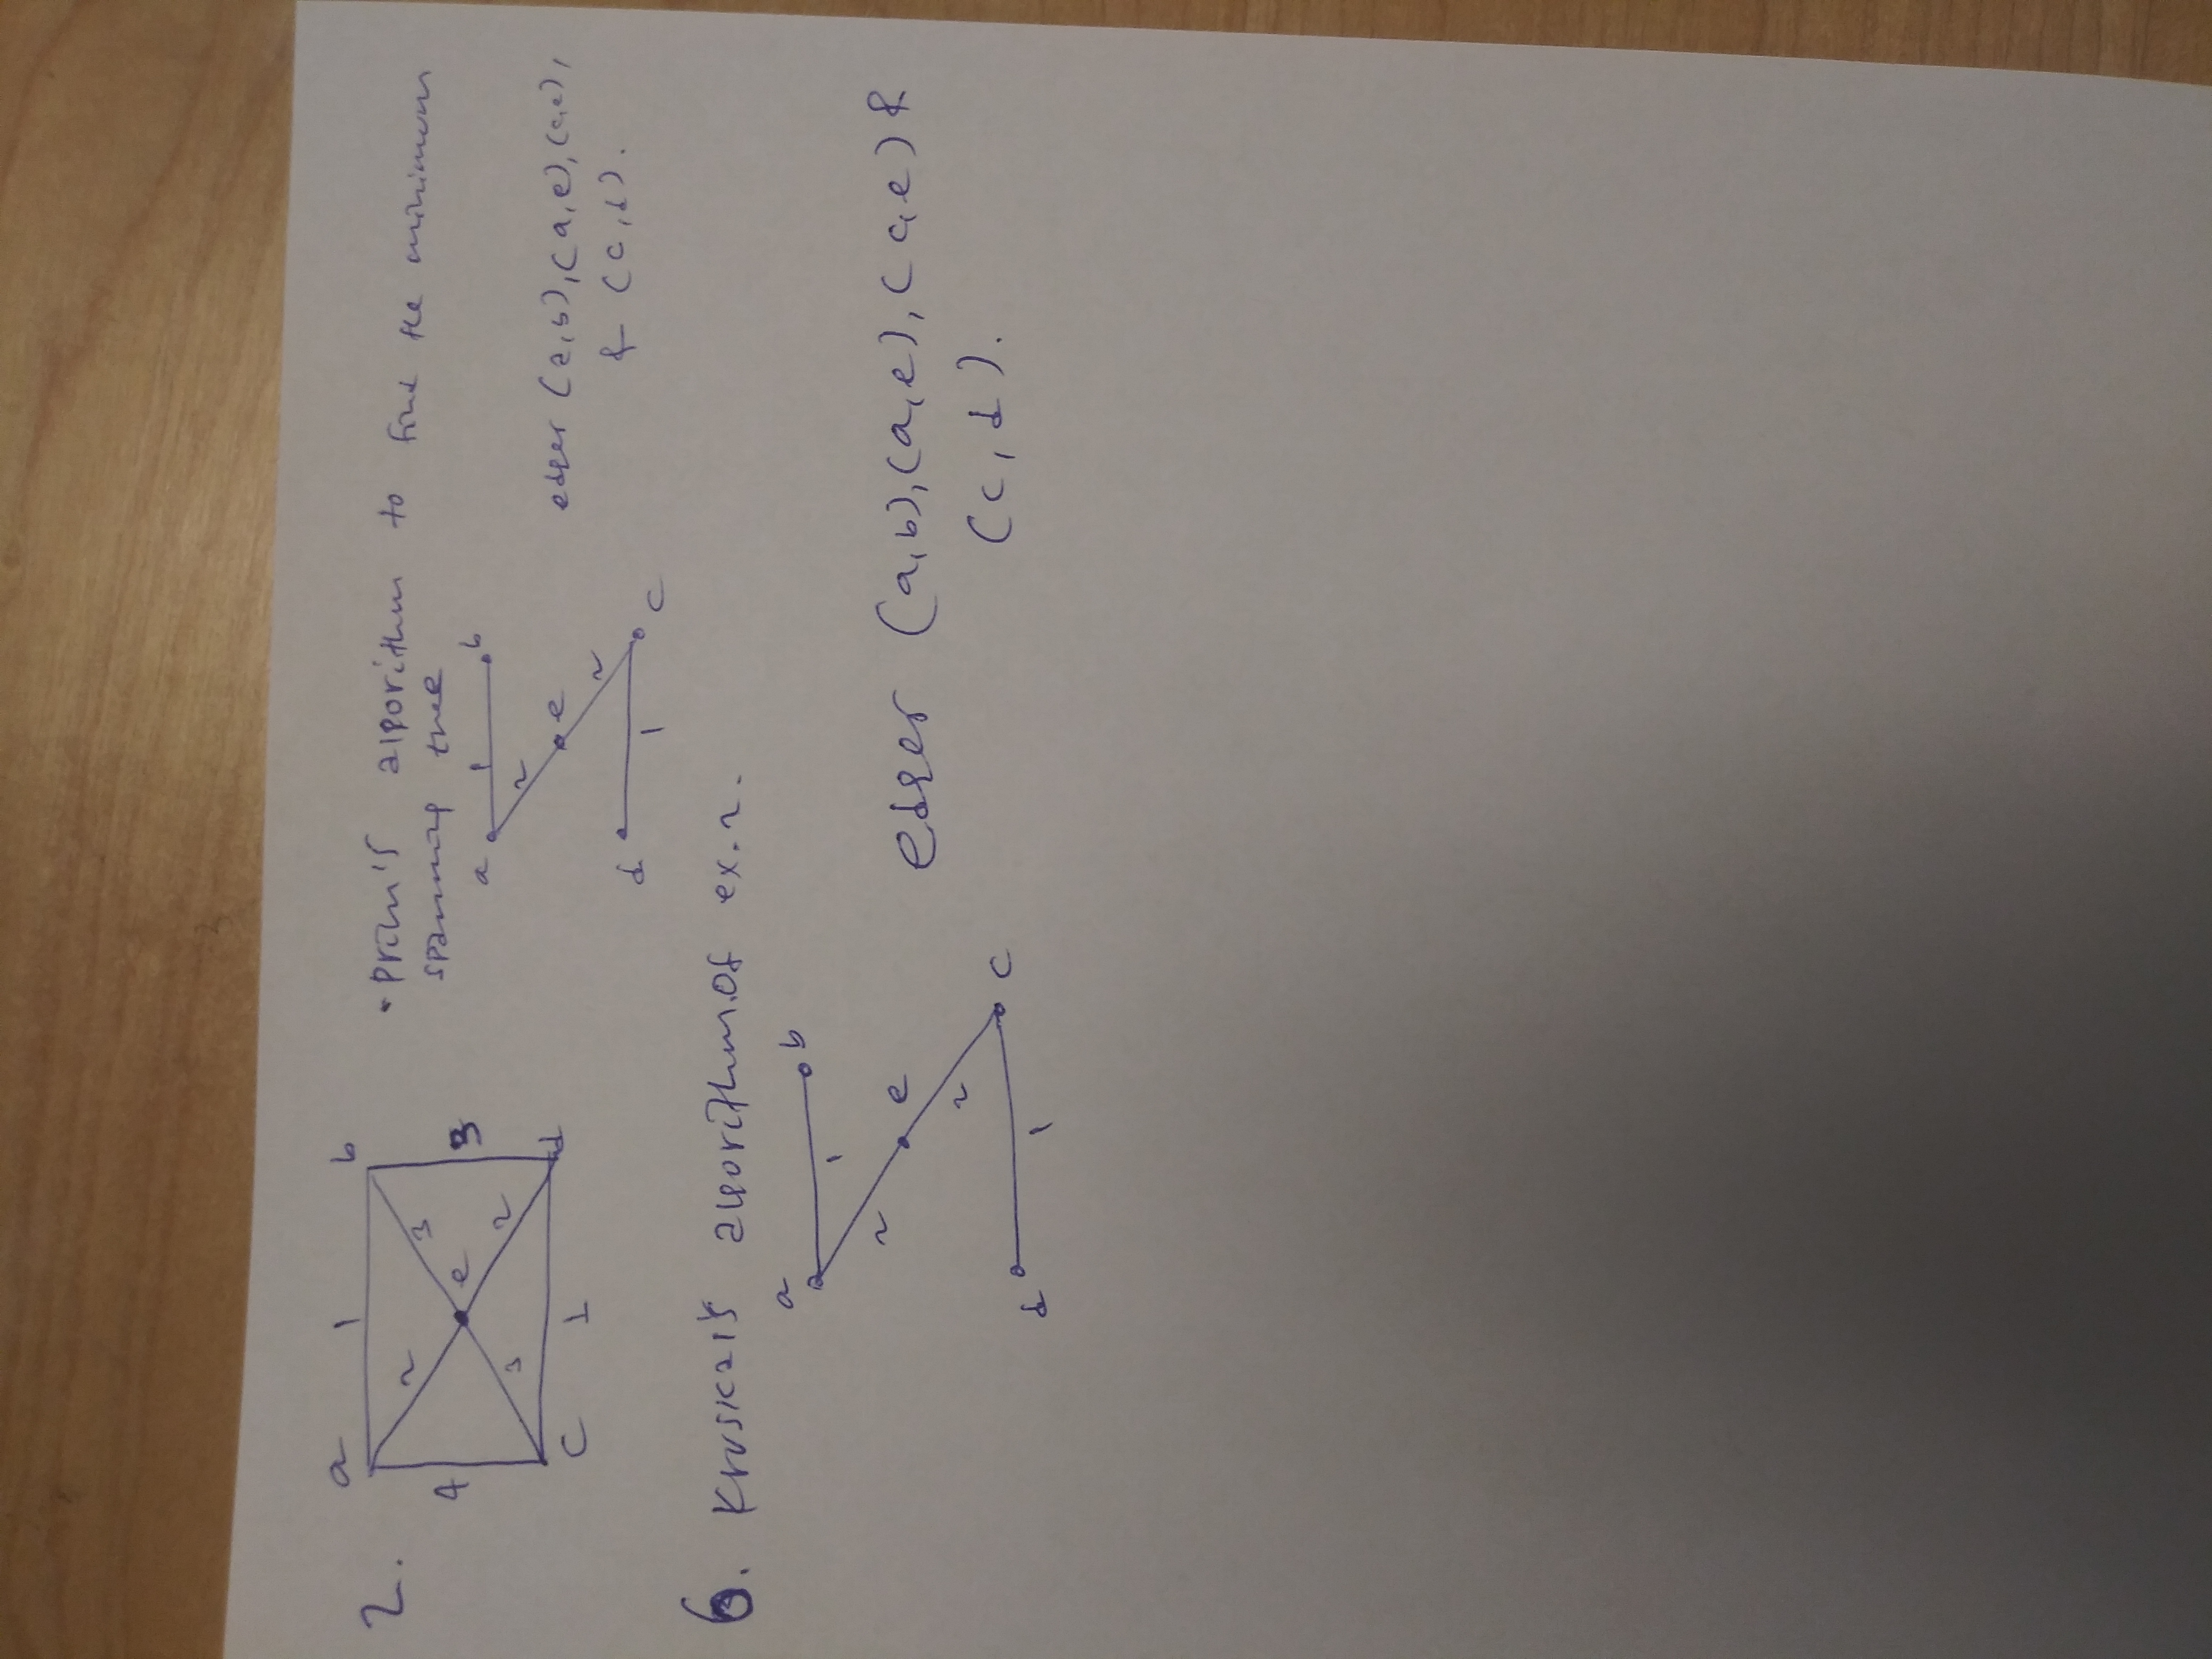 2.
a 1 b
2 3
4 e 3
3 2
c 1 d
• Prim's algorithm to find the minimum
spanning tree
a 1 b
2
e
2
d 1 c
edges (a,b), (a,e), (c,e),
& (c,d).
6. Kruskal's algorithm of ex. 2.
a b
1
2 e
2
d 1 c
edges (a,b), (a,e), (c,e) &
(c,d).